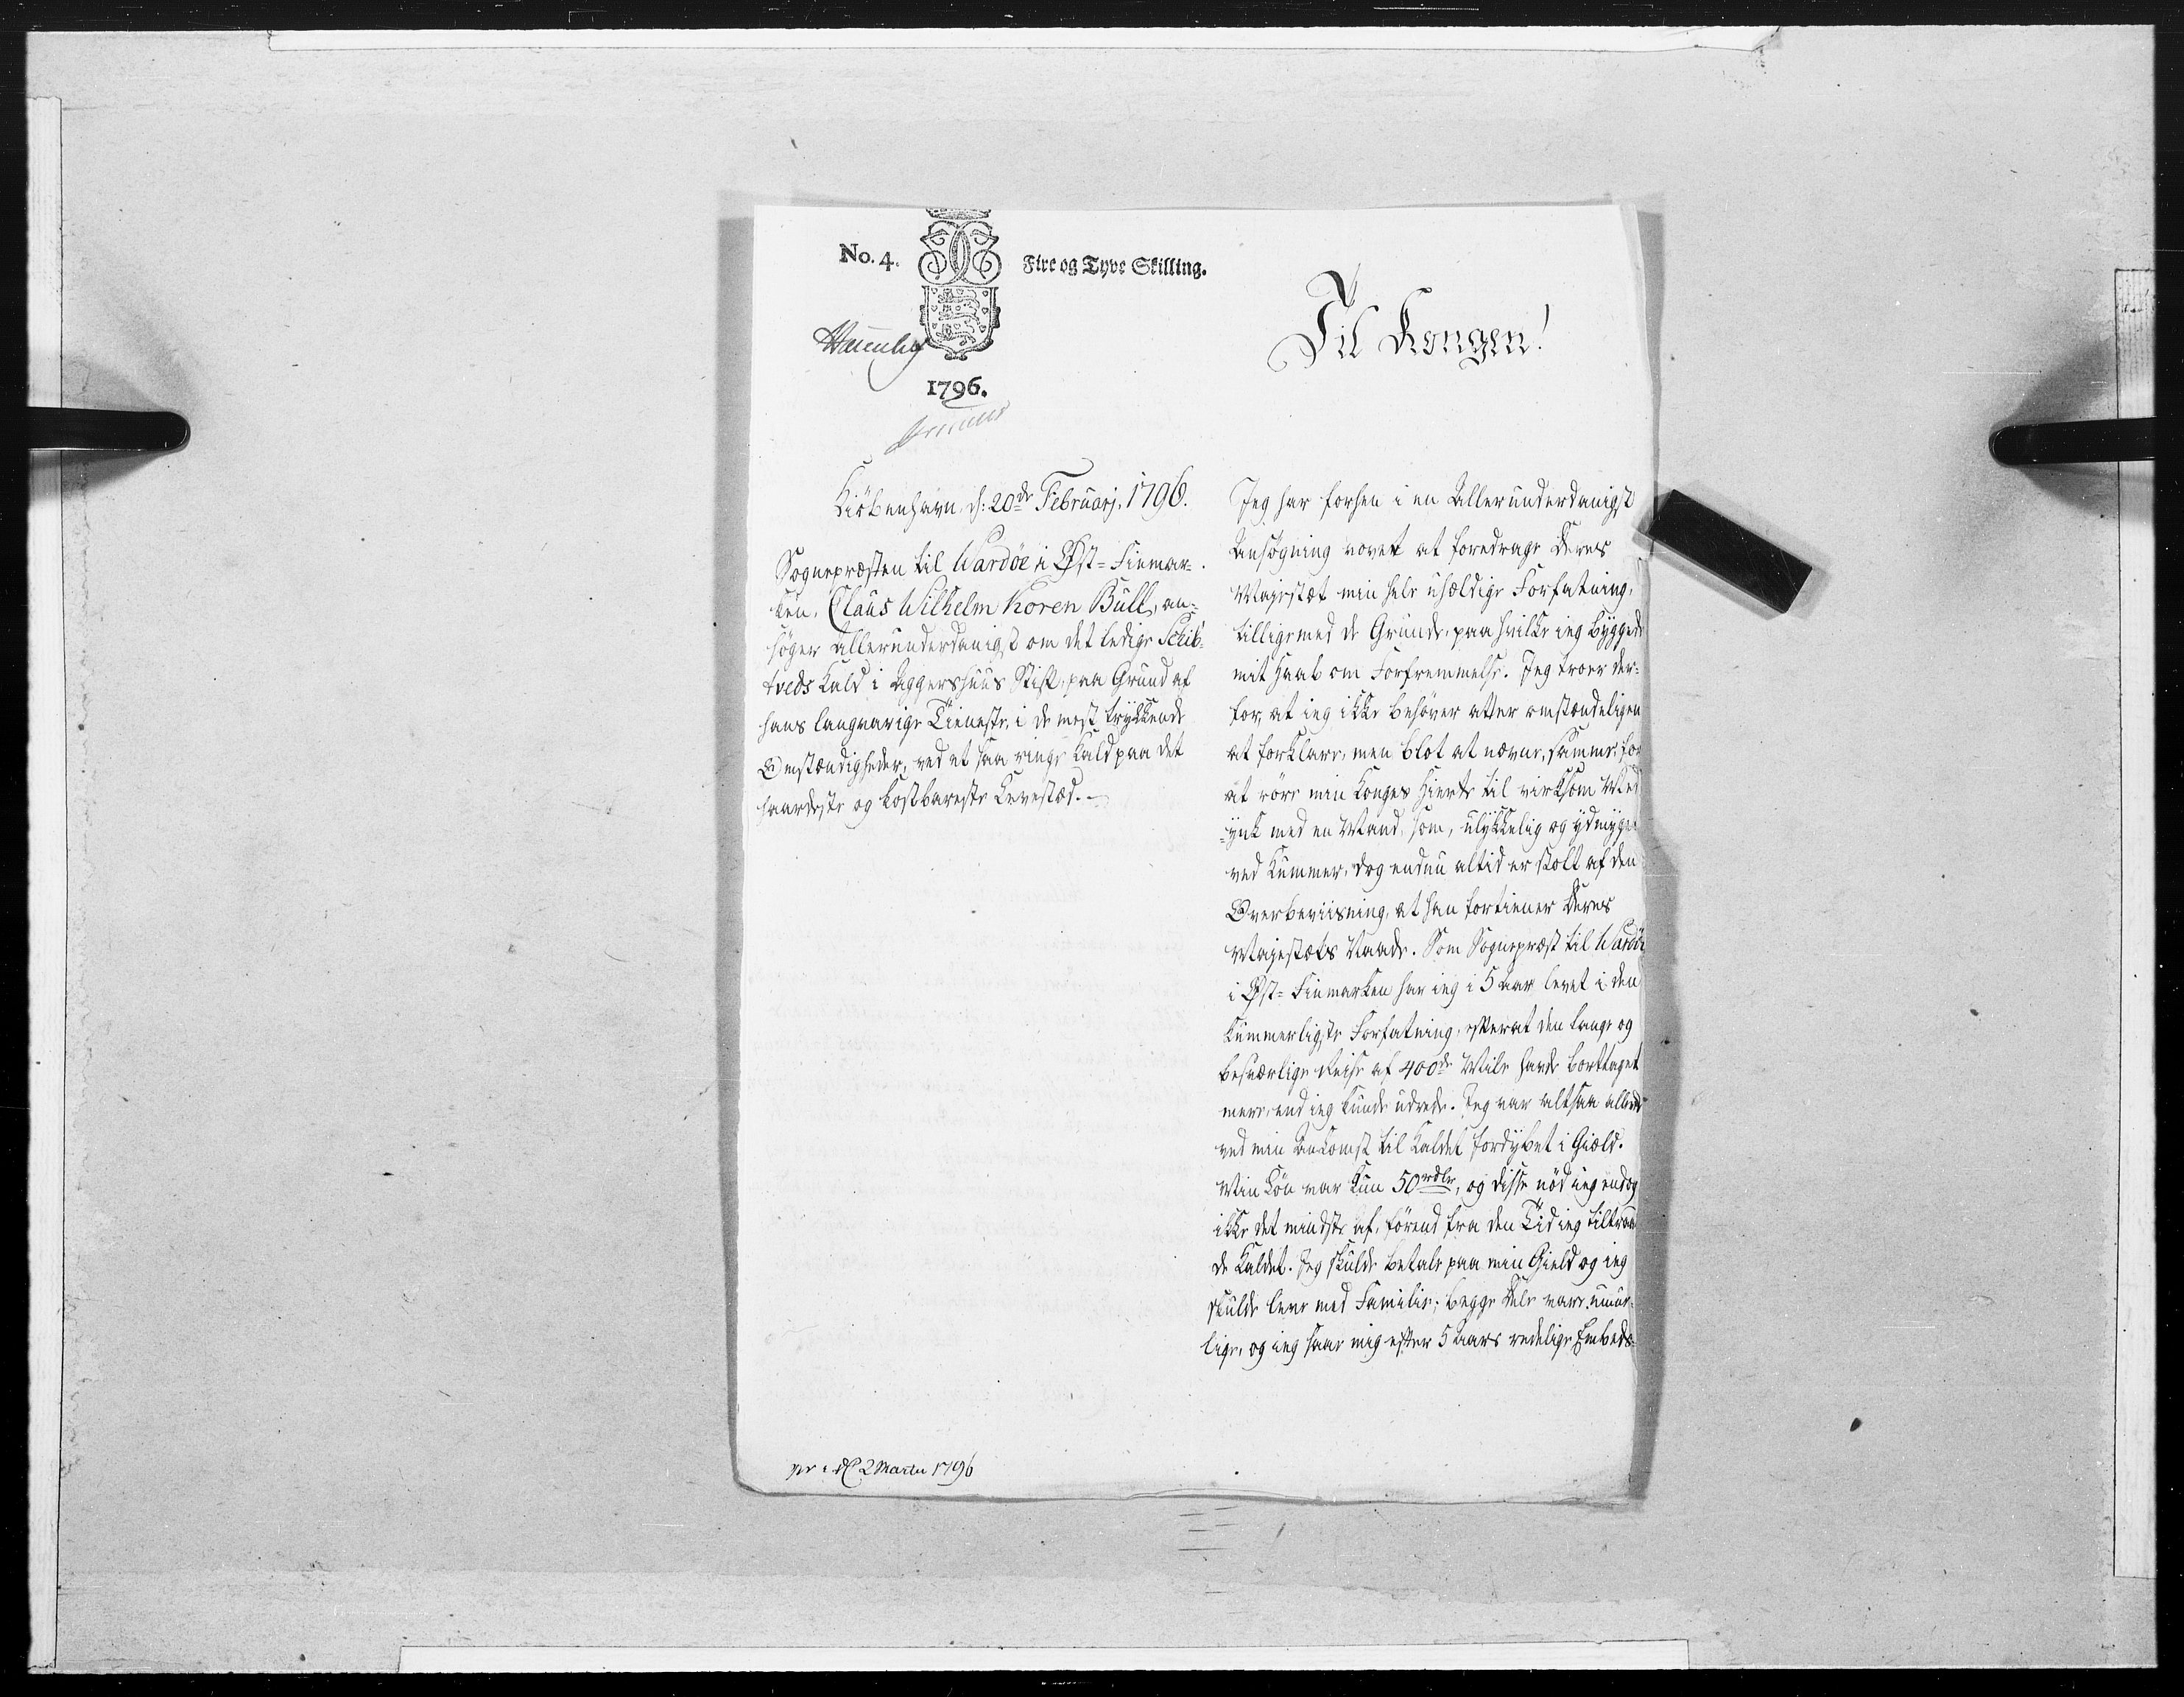 No. 4.
Fire og Tyve Skilling.
1796.
Til Kongen!
Kiöbenhavn, d: 20de Februarj, 1796.
Sognepræsten til Wardöe i Øst=Finmar=
ken, Claus Wilhelm Koren Bull, an=
söger allerunderdanigst om det ledige Schib=
tveds Kald i Aggershuus Stift, paa Grund af
hans langvarige Tieneste, i de mest trykkende
Omstændigheder, ved et saa ringe Kald paa det
haardeste og kostbareste Levested.
Jeg har forhen i en Allerunderdanigst
Ansögning vovet at foredrage Deres
Majestæt min hele uheldige Forfatning,
tilligemed de Grunde, paa hvilke ieg byggede
mit Haab om Forfremmelse. Jeg troer der=
for, at ieg ikke behöver atter omstændeligen
at forklare, men blot at nævne, samme, for
at röre min Konges Hierte til virksom Med
=ynk med en Mand, som, ulykkelig og ydmyget
ved Kummer, dog endnu altid er stolt af den
Overbeviisning, at han fortiener Deres
Majestæts Naade. Som Sognepræst til Wardöe
i Øst=Finmarken har ieg i 5 Aar levet i den
kummerligste Forfatning, efterat den lange og
besværlige Reise af 400de Mile havde borttaget
mere, end ieg kunde udrede. Jeg var altsaa allerede
ved min Ankomst til Kaldet fordybet i Giæld.
Min Lön var kun 50 rdlr, og disse nöd ieg endog
ikke det mindste af, förend fra den Tid ieg tiltraad
de Kaldet. Jeg skulde betale paa min Gield og ieg
skulde leve med Familie; begge Dele vare umue=
lige, og ieg saae mig efter 5 Aars redelige Embeds=
2 Martii 1796